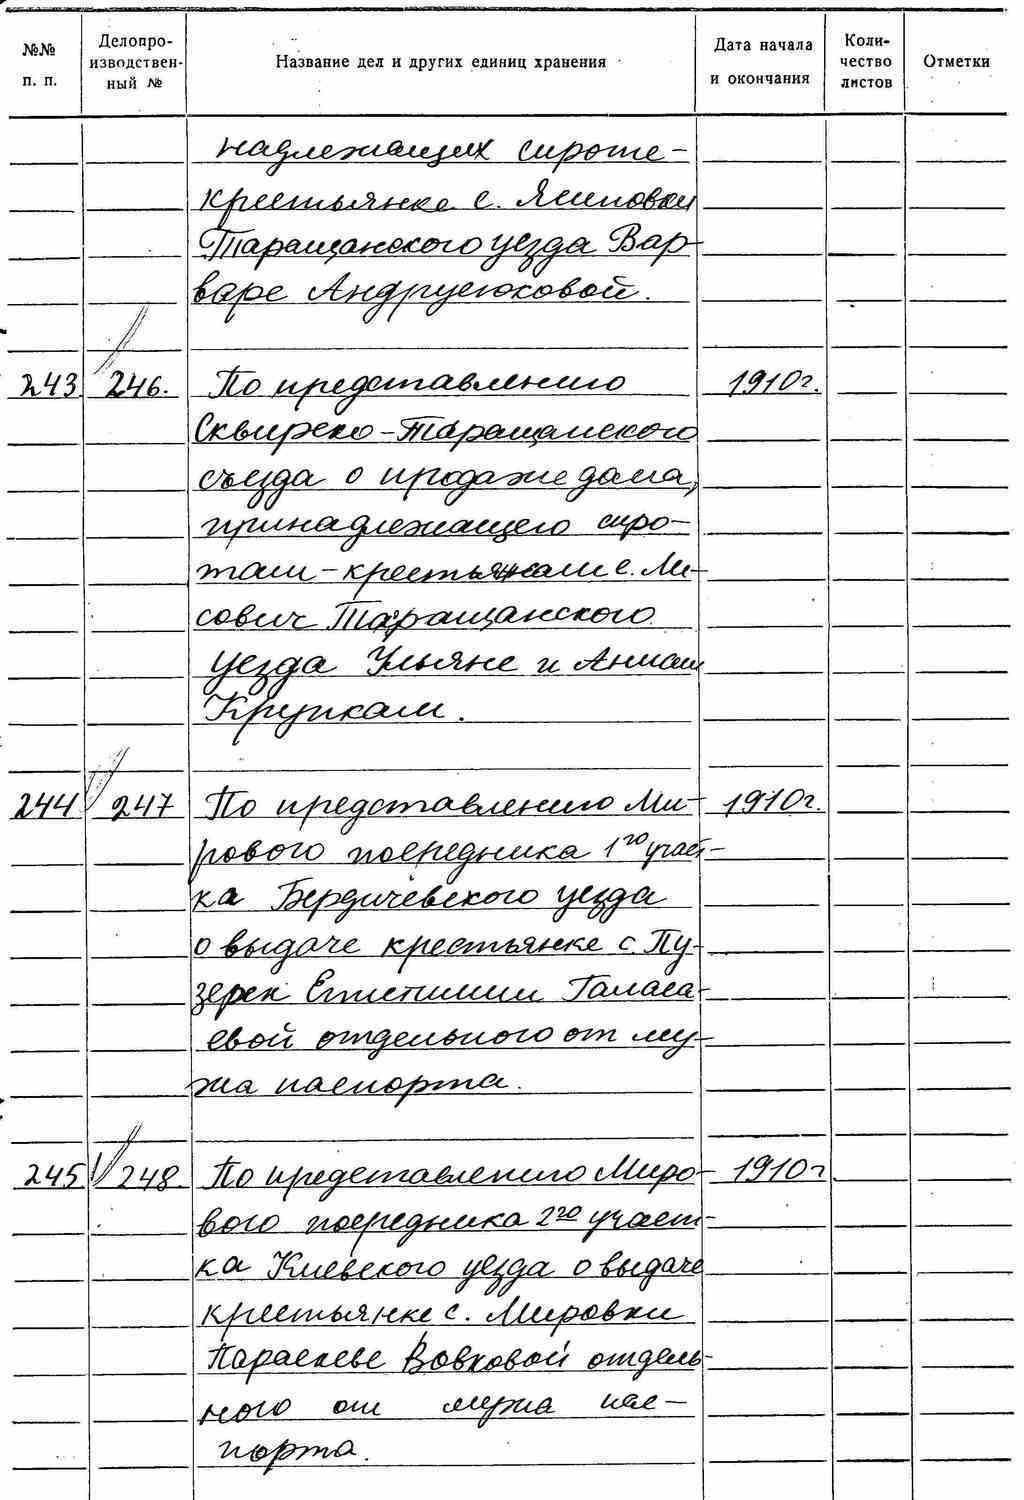 №№ п. п. Делопро-изводствен-ный № Название дел и других единиц хранения Дата начала и окончания Коли-чество листов Отметки
надлежащих сироте-
крестьянке с. Ясиповки
Таращанского уезда Вар-
варе Андрусюковой.
243 246. По представлению 1910г.
Сквирско-Таращанского
съезда о продаже дома,
принадлежащего сиро-
там-крестьянам с. Ли-
сович Таращанского
уезда Ульяне и Аннам
Крупкам.
244 247 По представлению Ми- 1910г.
рового посредника 1го участ-
ка Бердичевского уезда
о выдаче крестьянке с. Пу-
зерек Епистимии Галага-
евой отдельного от му-
жа паспорта.
245 248. По представлению Миро- 1910г
вого посредника 2го участ-
ка Киевского уезда о выдаче
крестьянке с. Мировки
Параскеве Вовковой отдель-
ного от мужа пас-
порта.